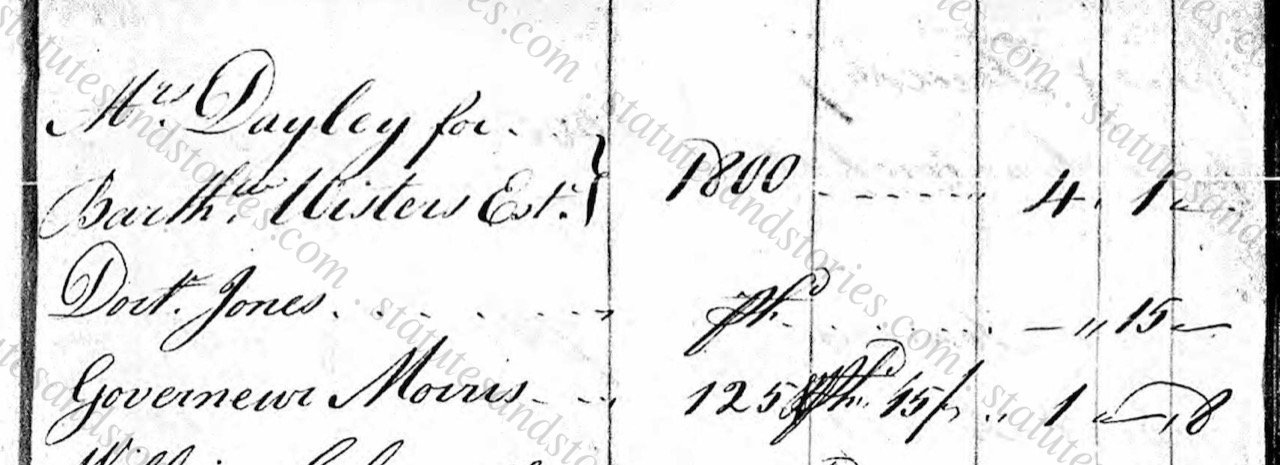 Mrs Dayley for
Barthw. Misters Est. } 1800 - - - - - 4 „ 1 „ —
Doct. Jones - - - - - - - - - — „ 15 „ —
Governeur Morris - - 125 15/ „ 1 „ — „ 8
statutesandstories.com